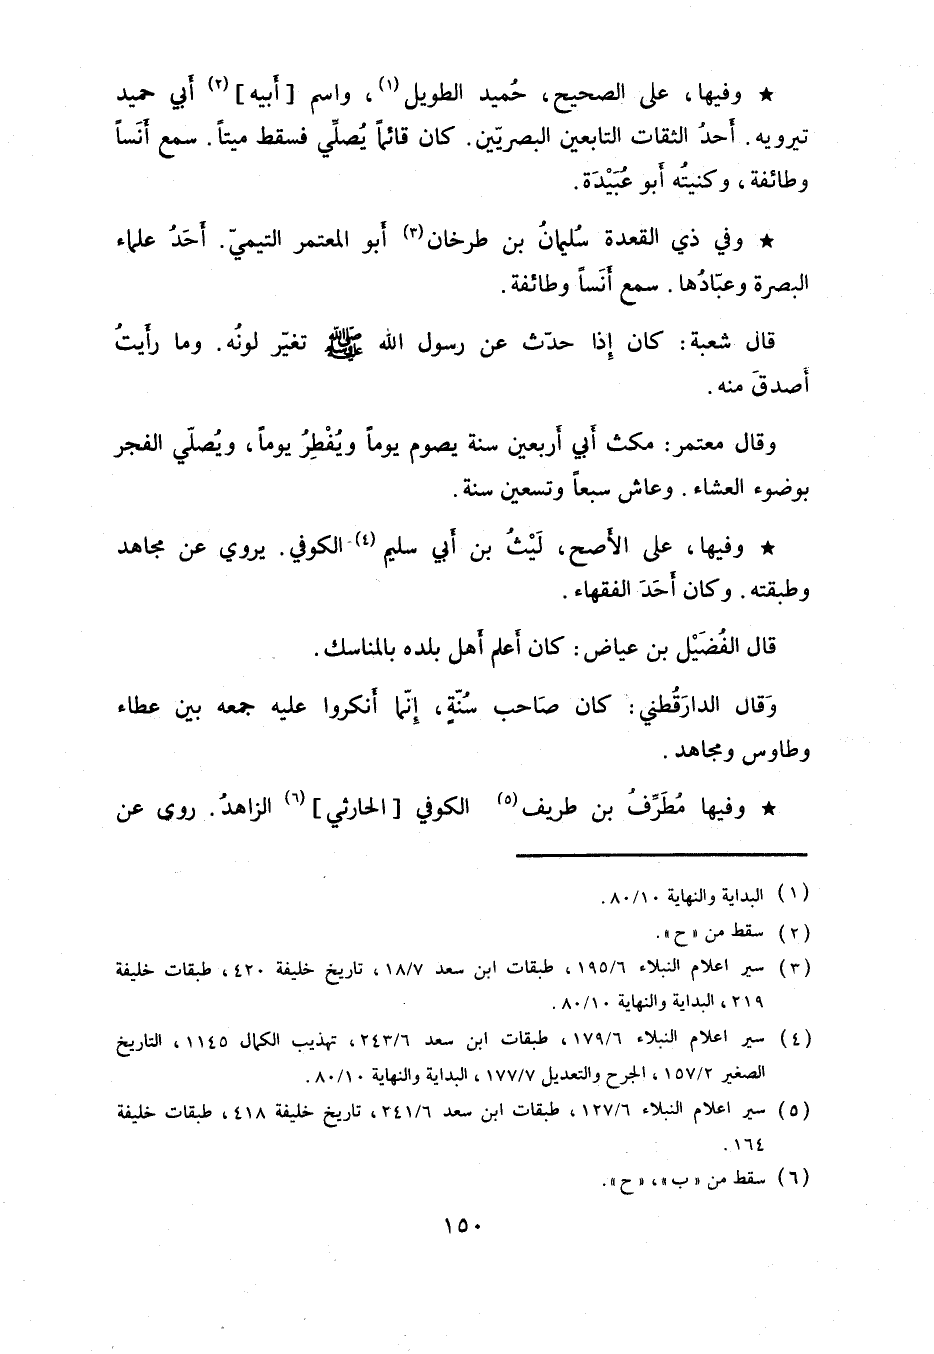 ★ وفيها، على الصحيح، حُميد الطويل(١)، واسم [أبيه](٢) أبي حميد
تيرويه. أَحدُ الثقات التابعين البصريّين. كان قائماً يُصلِّي فسقط ميتاً. سمع أَنَساً
وطائفة، وكنيتُه أبو عُبَيْدَة.
★ وفي ذي القعدة سُليمانُ بن طرخان(٣) أبو المعتمر التيميّ. أَحَدُ علماء
البصرة وعبّادُها. سمع أَنَساً وطائفة.
قال شعبة: كان إِذا حدّث عن رسول الله ﷺ تغيّر لونُه. وما رأَيتُ
أَصدقَ منه.
وقال معتمر: مكث أَبي أَربعين سنة يصوم يوماً ويُفْطِرُ يوماً، ويُصلّي الفجر
بوضوء العشاء. وعاش سبعاً وتسعين سنة.
★ وفيها، على الأَصح، لَيْثُ بن أَبي سليم(٤) الكوفي. يروي عن مجاهد
وطبقته. وكان أَحَدَ الفقهاء.
قال الفُضَيْل بن عياض: كان أَعلم أَهل بلده بالمناسك.
وَقال الدارَقُطني: كان صَاحب سُنّةٍ، إِنّما أَنكروا عليه جمعه بين عطاء
وطاوس ومجاهد.
★ وفيها مُطَرِّفُ بن طريف(٥) الكوفي [الحارثي](٦) الزاهدُ. روى عن
(١) البداية والنهاية ٨٠/١٠.
(٢) سقط من «ح».
(٣) سير اعلام النبلاء ١٩٥/٦، طبقات ابن سعد ١٨/٧، تاريخ خليفة ٤٢٠، طبقات خليفة
٢١٩، البداية والنهاية ٨٠/١٠.
(٤) سير اعلام النبلاء ١٧٩/٦، طبقات ابن سعد ٢٤٣/٦، تهذيب الكمال ١١٤٥، التاريخ
الصغير ١٥٧/٢، الجرح والتعديل ١٧٧/٧، البداية والنهاية ٨٠/١٠.
(٥) سير اعلام النبلاء ١٢٧/٦، طبقات ابن سعد ٢٤١/٦، تاريخ خليفة ٤١٨، طبقات خليفة
١٦٤.
(٦) سقط من «ب»، «ح».
١٥٠